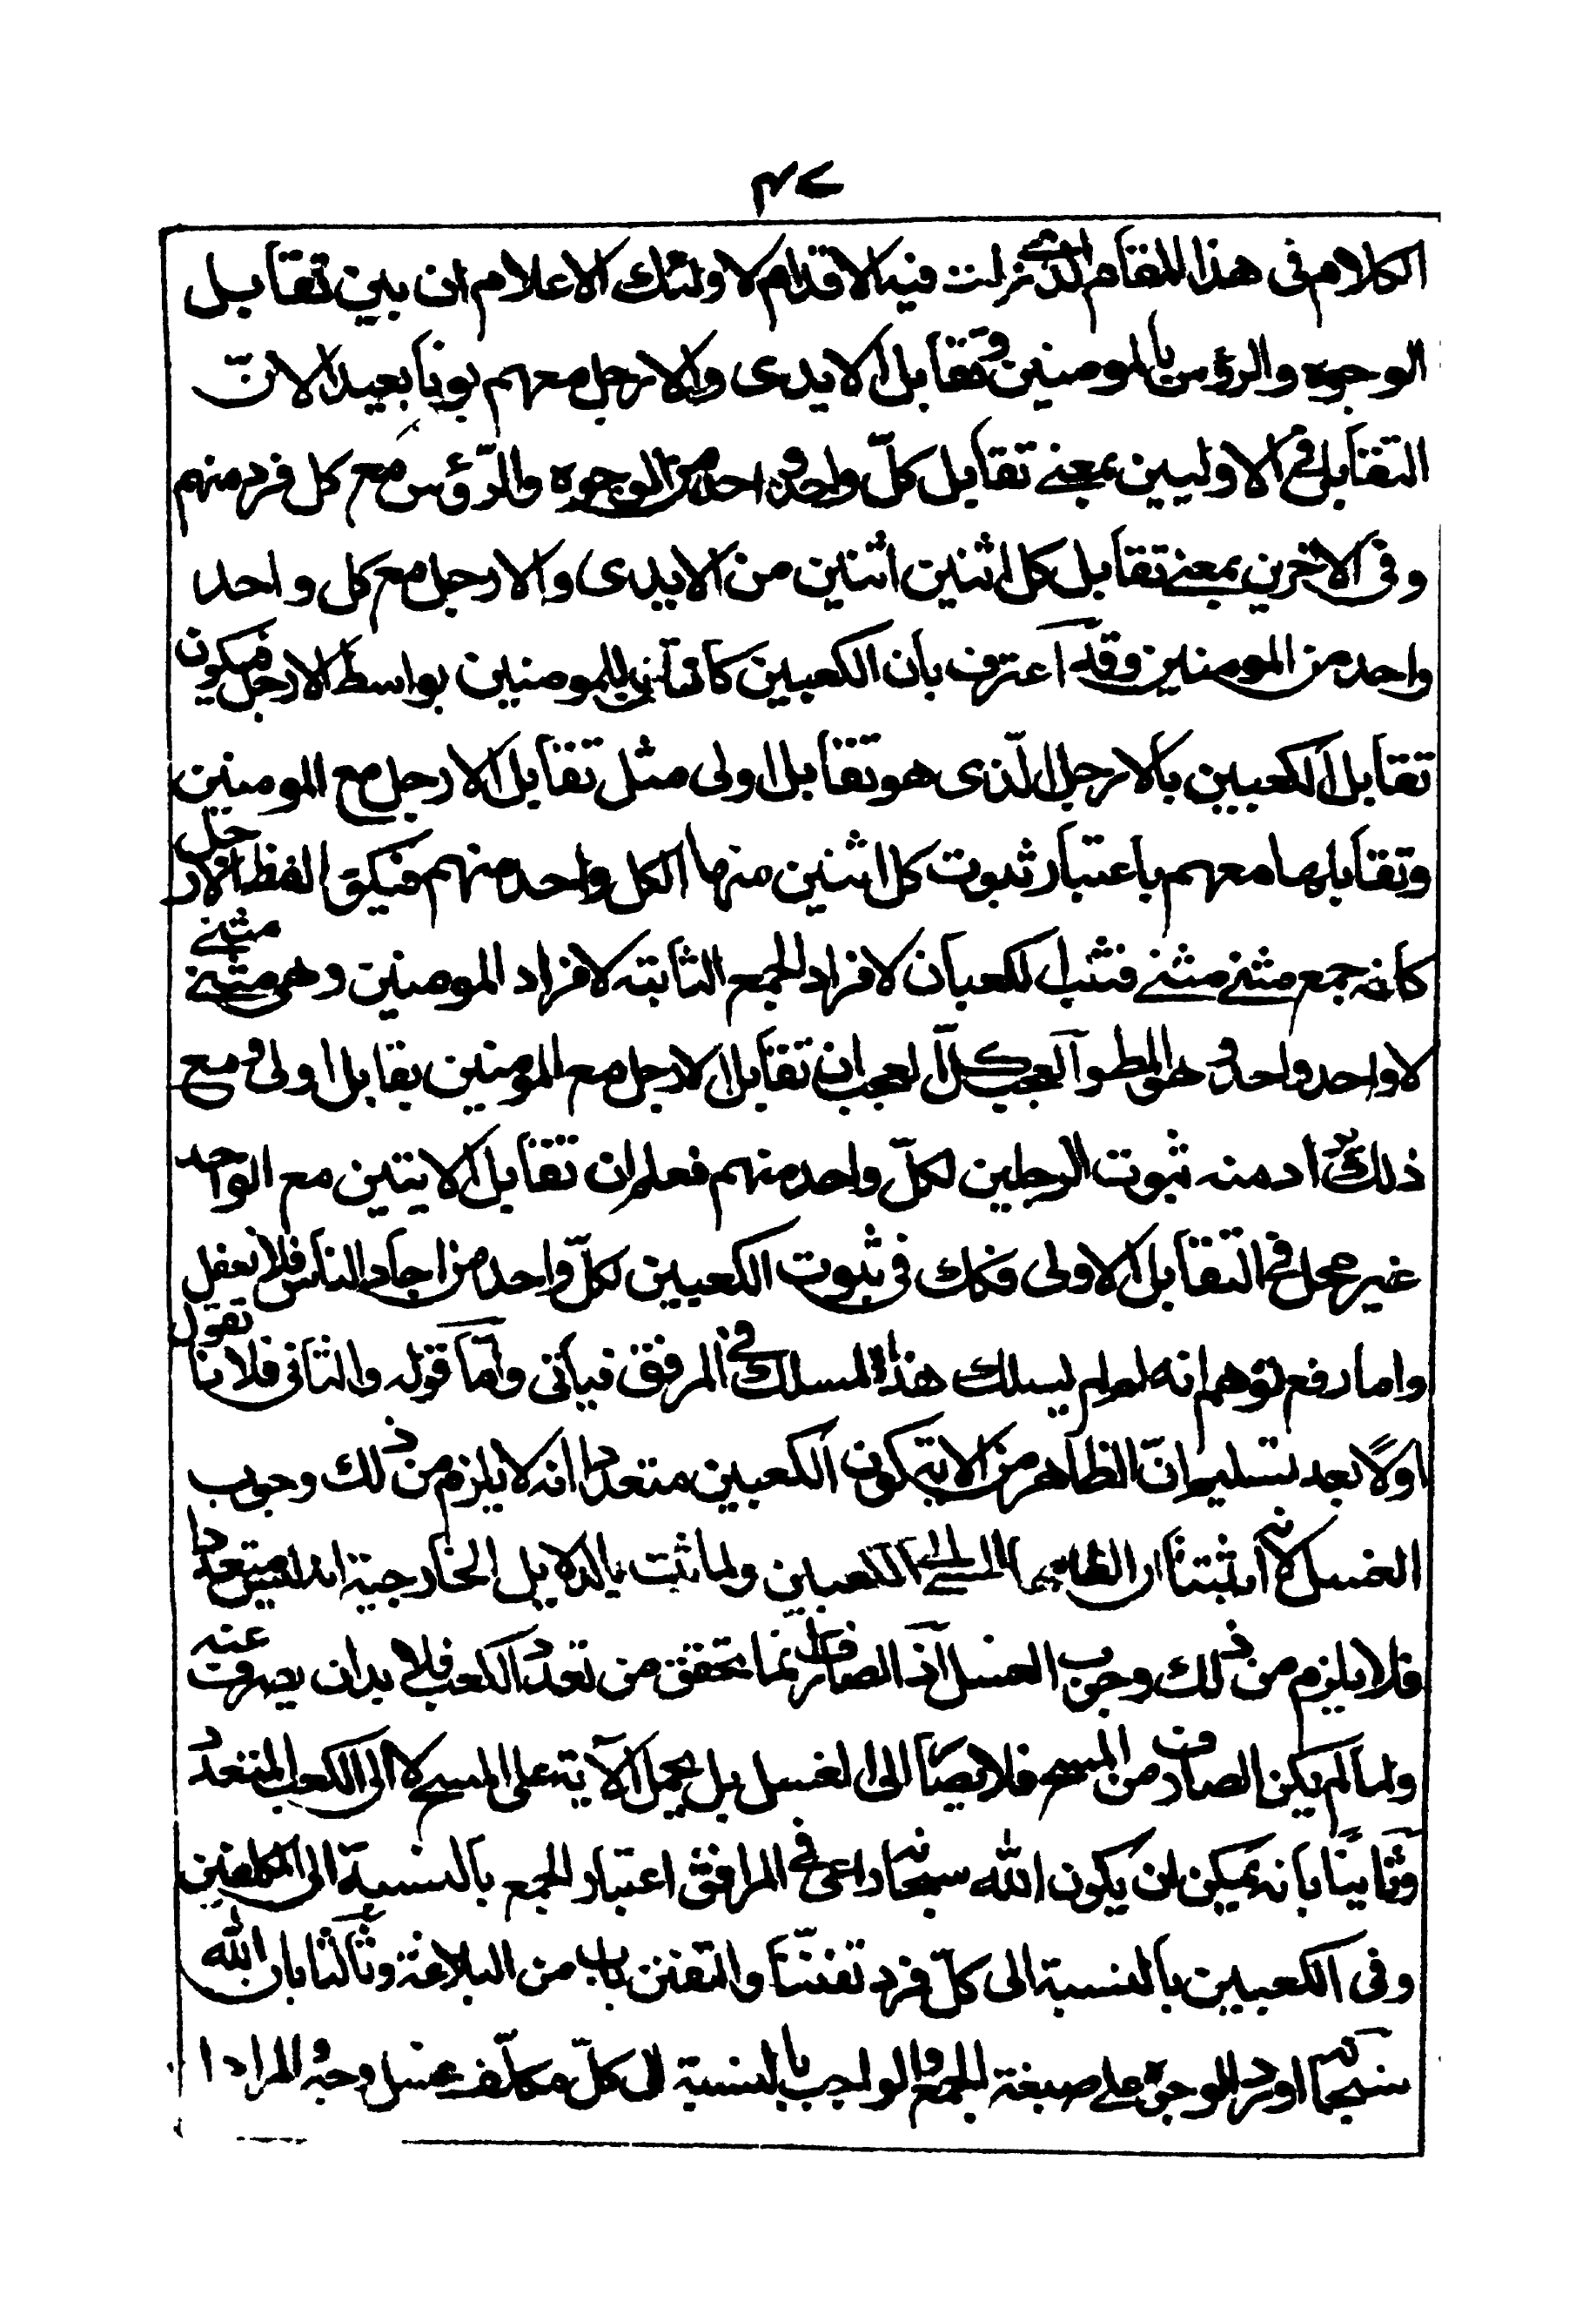 ٤٧
الكلام فى هذا المقام الذى زلت فيه الاقدام لاولئك الاعلام ان بين تقابل
الوجوه والرؤس بالمومنين وتقابل الايدى والارجل معهم بونا بعيدا لانّ
التقابل فى الاوليين بمعنى تقابل كلّ واحد واحد من الوجوه والرّؤس مع كل فرد منهم
وفى الاخرين بمعنى تقابل كل اثنين اثنين من الايدى والارجل مع كل واحد
واحد من المومنين وقد اعترف بان الكعبين كانتا للمومنين بواسط الارجل فيكون
تقابل الكعبين بالارجل الّذى هو تقابل اولى مثل تقابل الارجل مع المومنين
وتقابلها معهم باعتبار ثبوت كل اثنين منها لكل واحد منهم فيكون لفظ الارجل
كانه جمع مثنى مثنى فثبت الكعبان لافراد الجمع الثابته لافراد المومنين وهى مثنى مثنى
لا واحد واحد وهو المط والعجب كل العجب ان تقابل الارجل مع المومنين تقابل اولى ومع
ذلك يراد منه ثبوت الرجلين لكلّ واحد منهم فعلم ان تقابل الاثنين مع الواحد
غير مخل فى التقابل الاولى فكك فى ثبوت الكعبين لكلّ واحد من احاد الناس فلا تغفل
واما رفع توهم انه لم لم يسلك هذا المسلك فى المرفق فياتى وامّا قوله والثانى فلانا نقول
اولاً بعد تسليم انّ الظاهر من الاية كون الكعبين متعددا انه لا يلزم من ذلك وجوب
الغسل لانه اثبتنا ان الظاهر المسح الى الكعبين ولما ثبت بالدلايل الخارجية انه ليس متعددا
فلا يلزم من ذلك وجوب الغسل اذ الصارف انما تحقق من تعدد الكعب فلا بد ان يصرف عنه
ولما لم يكن الصارف من المسح فلا يصار الى الغسل بل يحمل الآية على المسح لا الى الكعب المتعدد
وثانيًا بانه يمكن ان يكون الله سبحانه راعى فى المرافق اعتبار الجمع بالنسبة الى المكلفين
وفى الكعبين بالنسبة الى كلّ فرد تفننا والتفنن باب من البلاغة وثالثا بان الله
سبحانه اورد الوجوه على صيغة الجمع والواجب بالنسبة الى كلّ مكلّف غسل وجه المراد ا